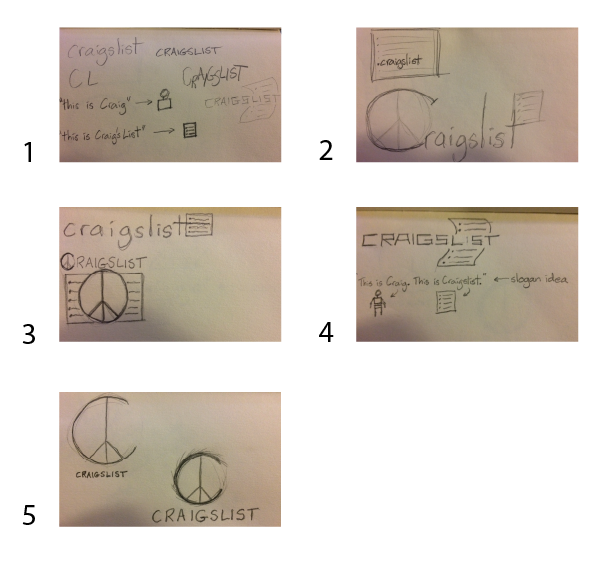 Craigslist CRAIGSLIST
CL CRAIGSLIST
"this is Craig" CRAIGSLIST
"this is Craig's List"
1
craigslist
Craigslist
2
craigslist
CRAIGSLIST
3
CRAIGSLIST
"This is Craig. This is Craigslist." slogan idea
4
CRAIGSLIST
CRAIGSLIST
5